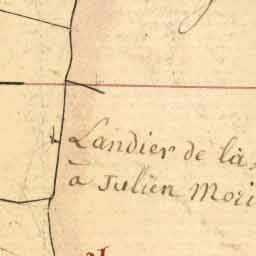 Landier de là
à Julien Mori